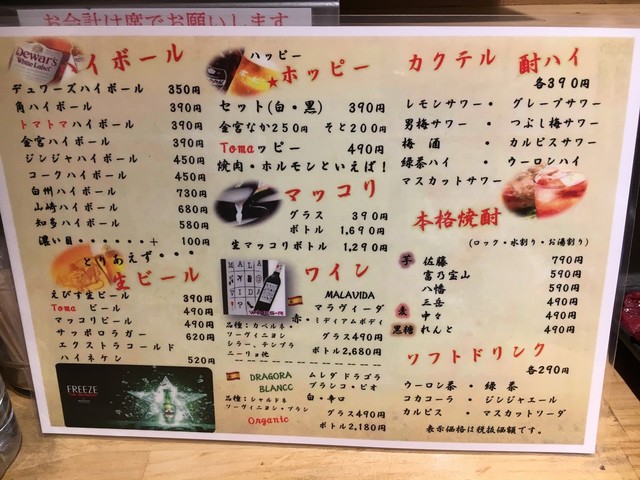 お会計は席でお願いします
Dewar's
White Label
ハイボール
デュワーズハイボール 350円
角ハイボール 390円
トマトマハイボール 390円
金宮ハイボール 390円
ジンジャハイボール 450円
コークハイボール 450円
白州ハイボール 730円
山崎ハイボール 680円
知多ハイボール 580円
濃い目・・・・・・+ 100円
とりあえず・・・
生ビール
えびす生ビール 390円
Toma ビール 490円
マッコリビール 490円
サッポロラガー 620円
エクストラコールド
ハイネケン 520円
FREEZE
ハッピー
★ホッピー
セット(白・黒) 390円
金宮なか250円 そと200円
Tomaッピー 490円
焼肉・ホルモンといえば!
マッコリ
グラス 390円
ボトル 1,690円
生マッコリボトル 1,290円
ワイン
MALAVIDA
マラヴィーダ
赤・ミディアムボディ
品種:カベルネ・
ソーヴィニヨン
シラー、テンプラ
ニーリョ他
グラス490円
ボトル2,680円
DRAGORA
BLANCC
ムレダ ドラゴラ
ブランコ・ビオ
白・辛口
品種:シャルドネ
ソーヴィニヨン・ブラン
グラス490円
Organic
ボトル2,180円
カクテル 酎ハイ
各390円
レモンサワー・ グレープサワー
男梅サワー・ つぶし梅サワー
梅酒・ カルピスサワー
緑茶ハイ・ ウーロンハイ
マスカットサワー
本格焼酎
(ロック・水割り・お湯割り)
芋 佐藤 790円
富乃宝山 590円
八幡 590円
三岳 490円
麦 中々 490円
黒糖 れんと 490円
ソフトドリンク
各290円
ウーロン茶・ 緑茶
コカコーラ・ ジンジャエール
カルピス・ マスカットソーダ
表示価格は税抜価額です。